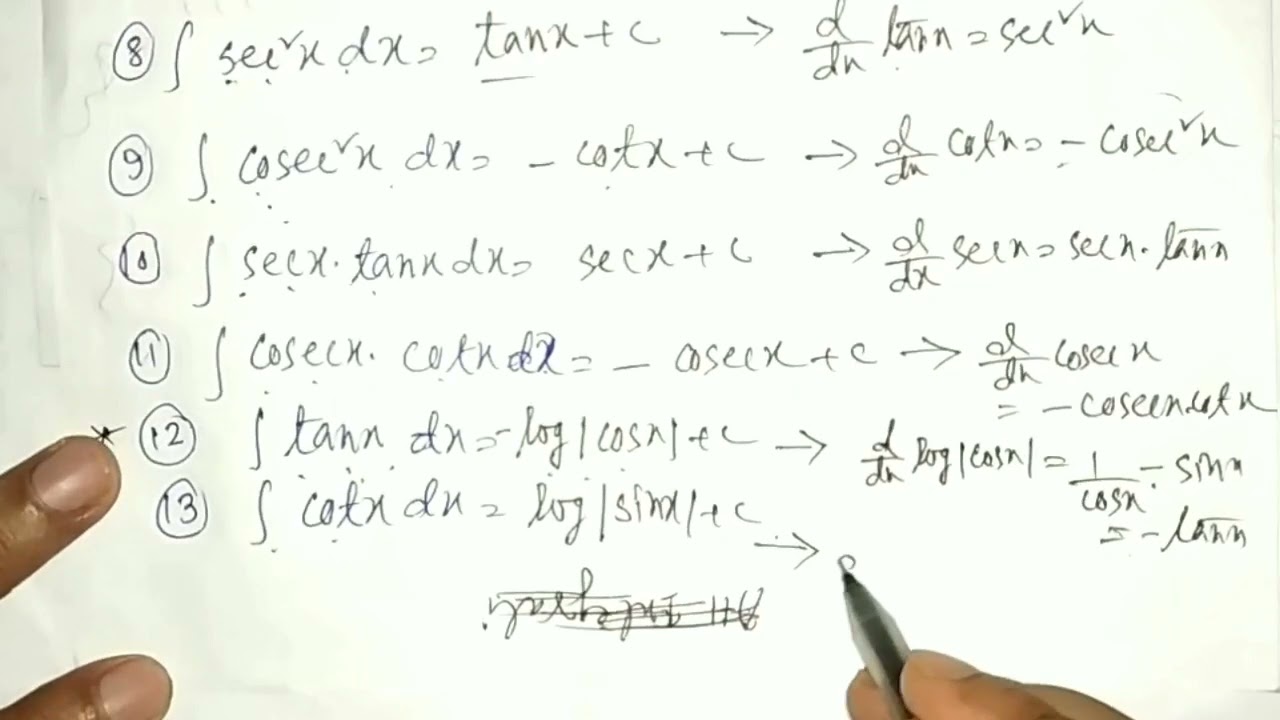 ⑧ ∫ sec²x dx = tanx + c → d/dx tanx = sec²x
⑨ ∫ cosec²x dx = - cotx + c → d/dx cotx = - cosec²x
⑩ ∫ secx . tanx dx = secx + c → d/dx secx = secx . tanx
⑪ ∫ cosecx . cotx dx = - cosecx + c → d/dx cosecx
= - cosecx.cotx
⑫ ∫ tanx dx = -log|cosx| + c → d/dx log|cosx| = 1/cosx . - sinx
= - tanx
⑬ ∫ cotx dx = log|sinx| + c
→